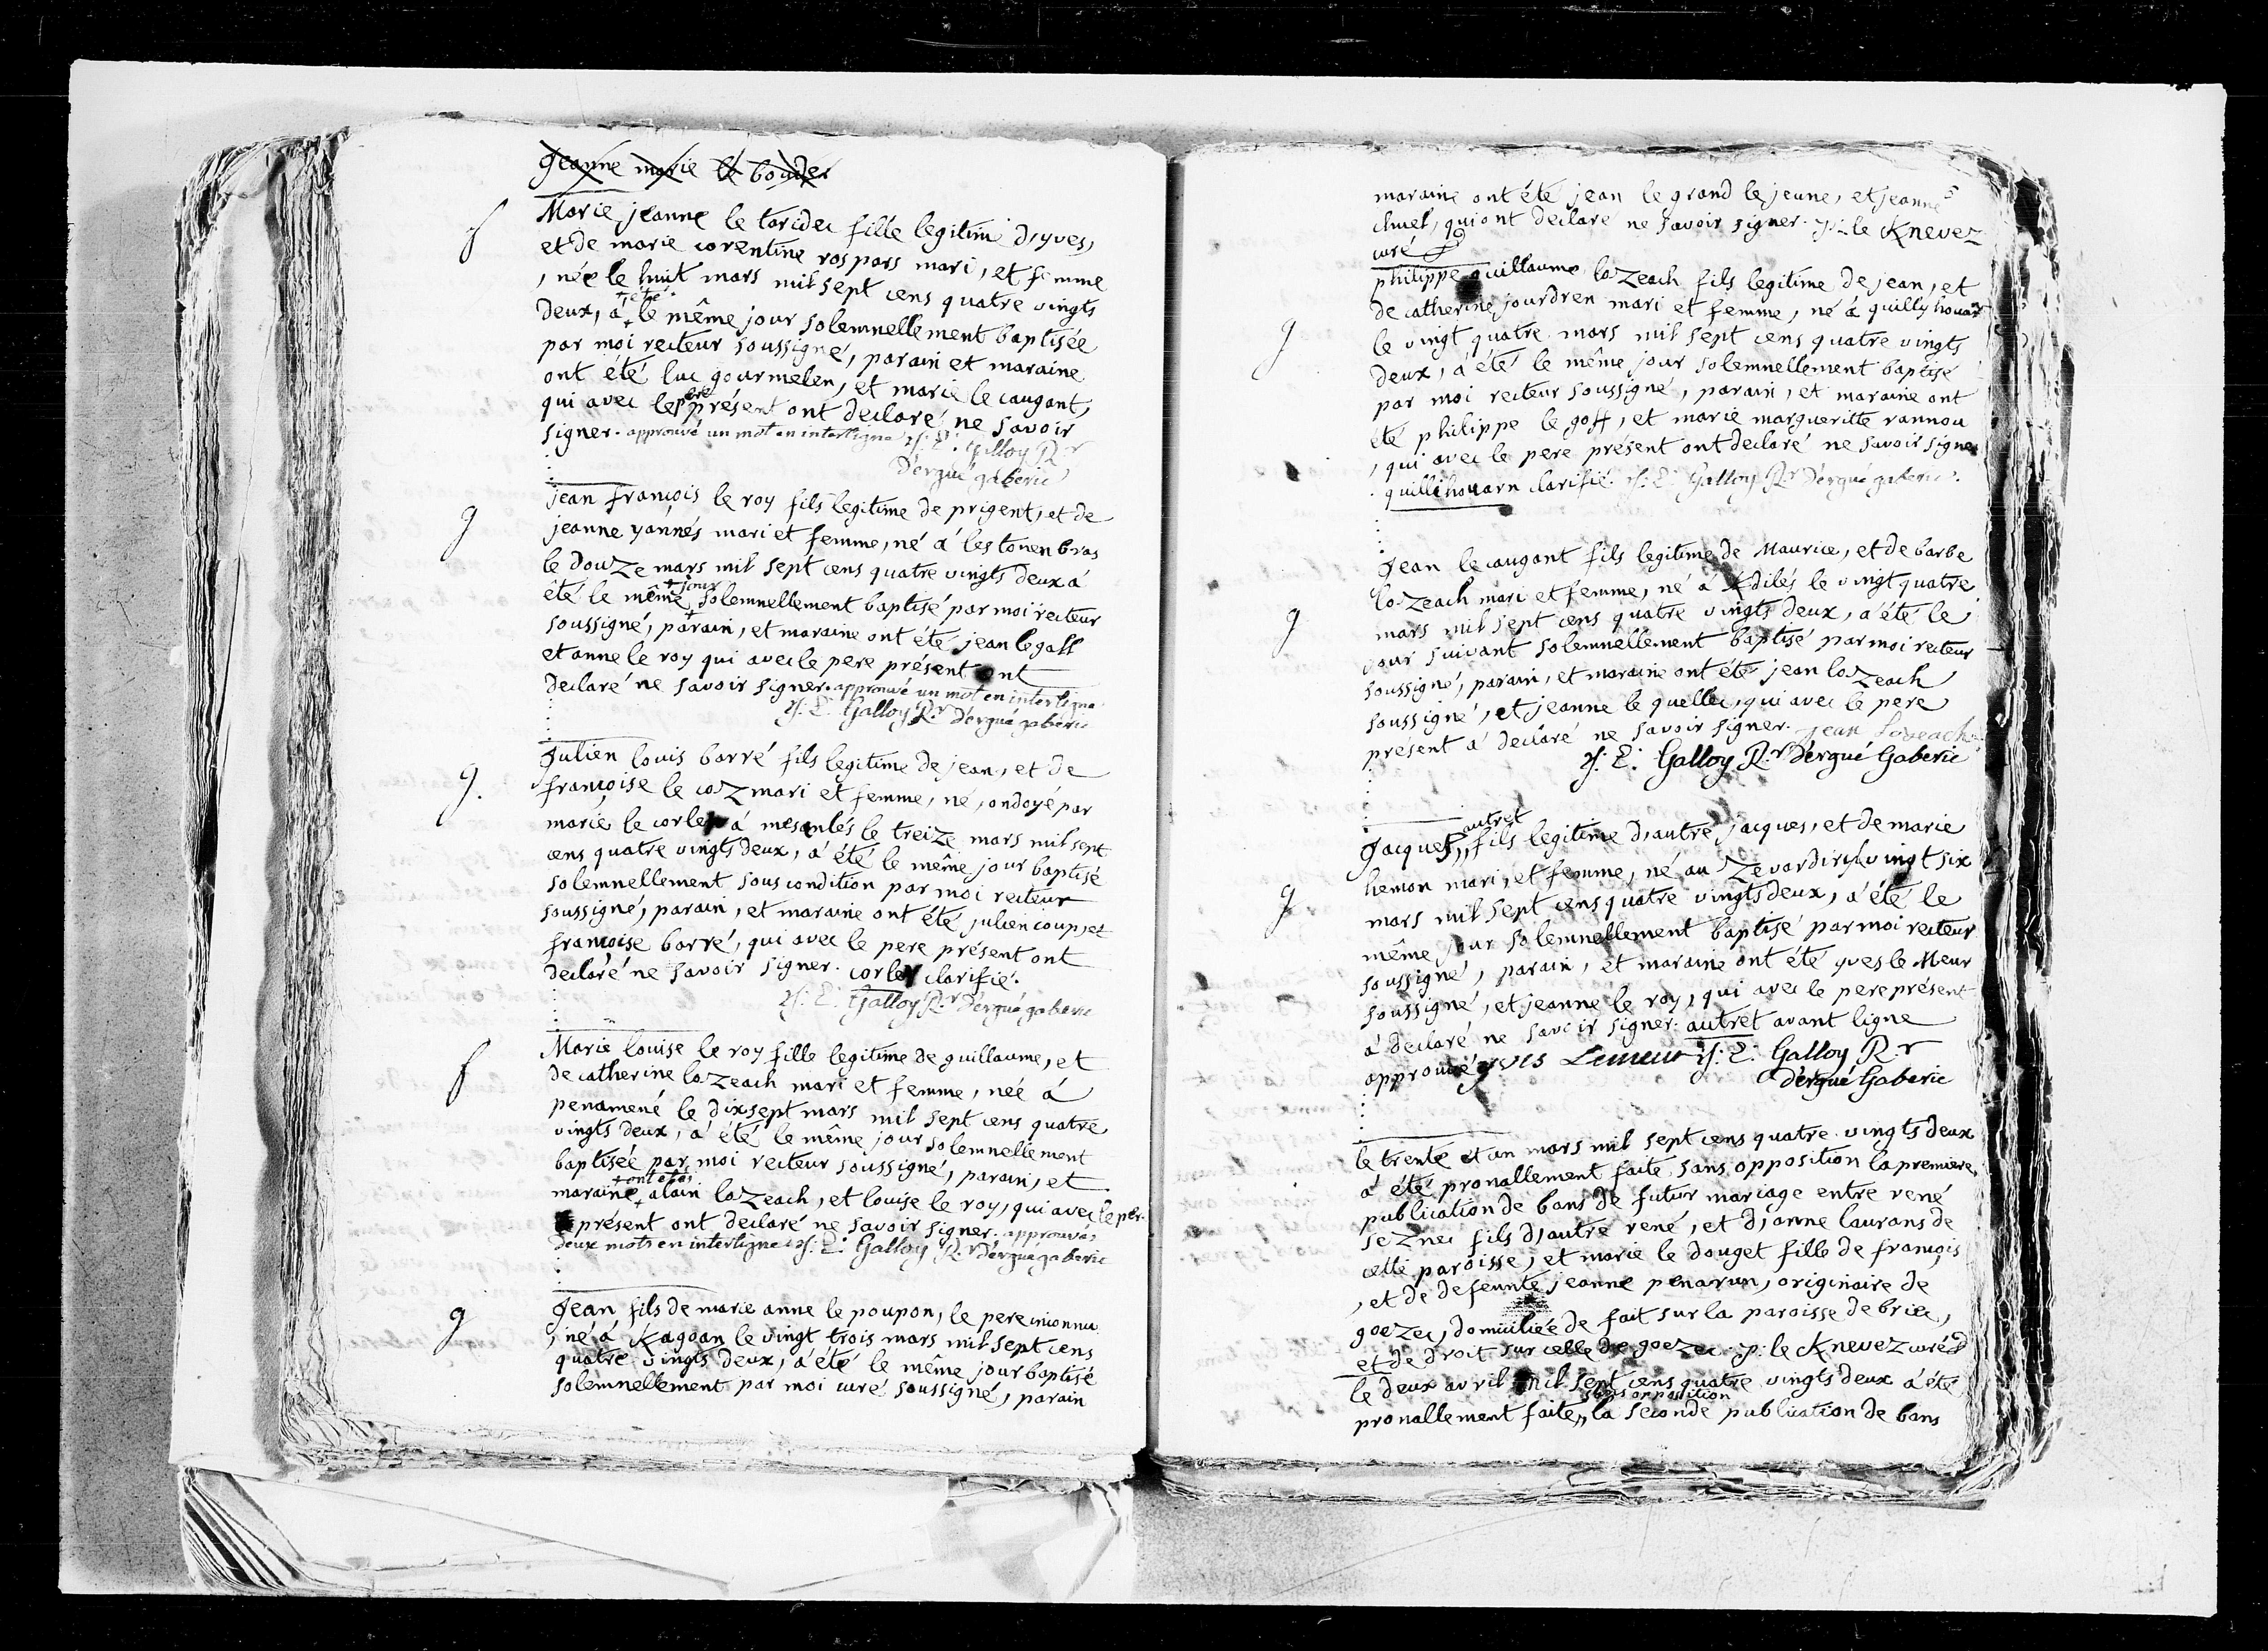 Jeanne marie le bouder
f
Marie jeanne le taridec fille legitime d'yves,
et de marie corentine rospars mari, et femme
, née le huit mars mil sept cens quatre vingts
deux, a + été le même jour solemnellement baptisée
par moi recteur soussigné, parain et maraine
ont été luc gourmelen, et marie le caugant,
qui avec le pere présent ont declaré ne savoir
signer. approuvé un mot en interligne Galloy R.r
D'ergué gaberic
g
jean françois le roy fils legitime de prigent, et de
jeanne yannés mari et femme, né à lestonen bras
le douze mars mil sept cens quatre vingts deux à
été le même + jour solemnellement baptisé par moi recteur
soussigné, parain, et maraine ont été jean le gall
et anne le roy qui avec le pere présent ont
declaré ne savoir signer. approuvé un mot en interligne
Galloy R.r D'ergué gaberic
g.
Julien louis barré fils legitime de jean, et de
françoise le coz mari et femme, né, ondoyé par
marie le corler à mesanlés le treize mars mil sept
cens quatre vingts deux, à été le même jour baptisé
solemnellement sous condition par moi recteur
soussigné, parain, et maraine ont été julien coup, et
françoise barré, qui avec le pere présent ont
declaré ne savoir signer. corler clarifié.
Galloy R.r D'ergué gaberic
f
Marie louise le roy fille legitime de guillaume, et
de catherine lozeach mari et femme, neé à
penamené le dix sept mars mil sept cens quatre
vingts deux, à été le même jour solemnellement
baptisée par moi recteur soussigné, parain, et
maraine + ont été alain lozeach, et louise le roy, qui avec le per.
présent ont declaré ne savoir signer. approuvés
deux mots en interligne Galloy R.r D'ergué gaberic
g
Jean, fils de marie anne le poupon, le pere inconnu
, né à Kagoan le vingt trois mars mil sept cens
quatre vingts deux, à été le même jour baptisé
solemnellement par moi curé soussigné, parain
maraine ont été jean le grand le jeune, et jeanne
, qui ont declaré ne savoir signer. le Knevez
curé
g
philippe guillaume lozeach fils legitime de jean, et
de catherine jourdren mari et femme, né à quillyhouarn
le vingt quatre mars mil sept cens quatre vingts
deux, à été le même jour solemnellement baptisé
par moi recteur soussigné, parain, et maraine ont
été philippe le goff, et marie margueritte rannou
, qui avec le pere présent ont declaré ne savoir signer
. quillihouarn clarifié. Galloy R.r D'ergué gaberic.
g
Jean le caugant fils legitime de Maurice, et de barbe
lozeach mari et femme, né à Kdilés le vingt quatre
mars mil sept cens quatre vingts deux, à été le
jour suivant solemnellement baptisé par moi recteur
soussigné, parain, et maraine ont été jean lozeach
soussigné, et jeanne le quellec, qui avec le pere
présent à declaré ne savoir signer. jean Loseach
Galloy R.r D'ergué Gaberic
g
Jacques, autret fils legitime d'autre jacques, et de marie
hemon mari, et femme, né au Zevardiry vingt six
mars mil sept cens quatre vingts deux, à été le
même jour solemnellement baptisé par moi recteur
soussigné, parain, et maraine ont été yves le Meur
soussigné, et jeanne le roy, qui avec le pere présent
à declaré ne savoir signer. autret avant ligne
approuvé yves Lemeur Galloy R.r
D'ergué Gaberic
le trente et un mars mil sept cens quatre vingts deux
à été pronallement faite sans opposition la premiere
publication de bans de futur mariage entre rené
seznec fils d'autre rené, et d'anne laurans de
cette paroisse, et marie le douget fille de françois
, et de defeunte jeanne penarun, originaire de
goezec, domiciliée de fait sur la paroisse de briec,
et de droit sur celle de goezec. le Knevez curé
le deux avril mil sept cens quatre vingts deux à été
pronallement faite,, sans opposition la seconde publication de bans